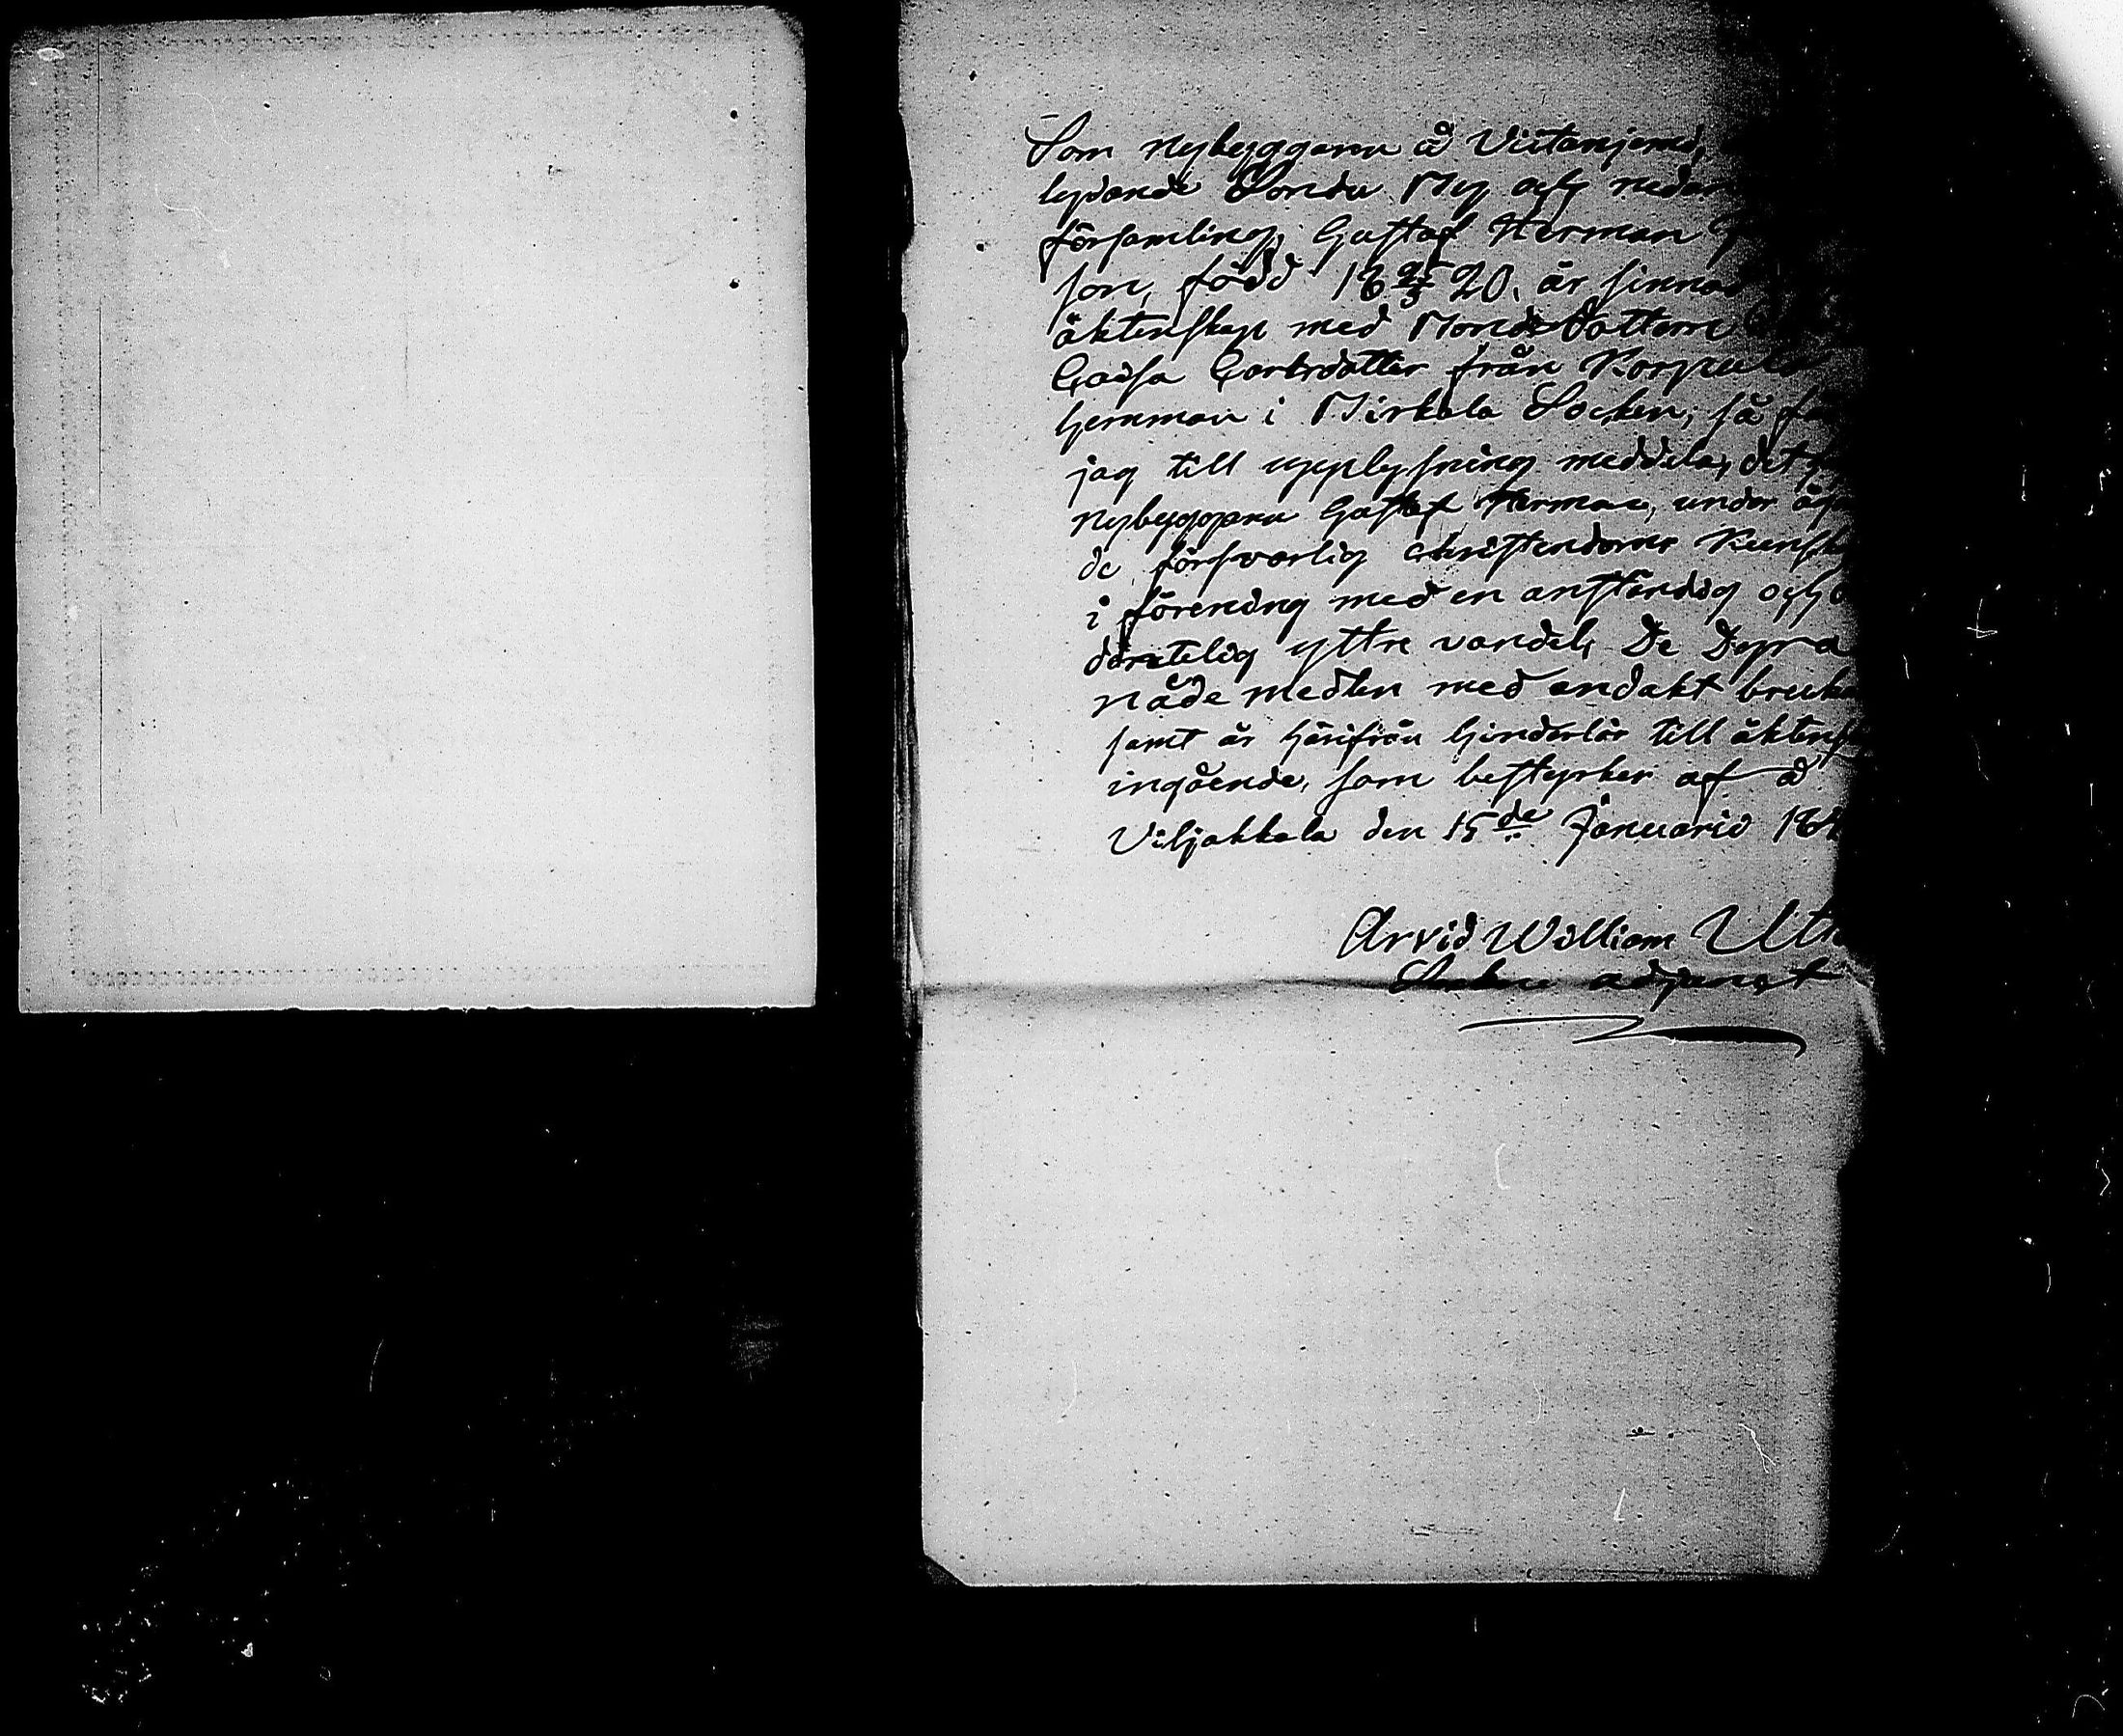 Som Nybyggaren å Viitaniemi,
lydande Under My och neder
församling, Gustaf Herman
son, född 18 25/3 20, är sinnad
äktenskap med Bonde Dottern
Cajsa Carlsdotter från Korpula
hemman i Birkala Socken; så får
jag till upplysning meddela, det
Nybyggaren Gustaf Herman, under
de försvarlig christendoms Kunsk
i förening med en anständig och o
derätelig yttre vandel, De Dyra
nåde medlen med andakt bruka
samt är härifrån hinderlös till äktensk
ingående, som bestyrker af å
Viljakkala den 15de Januarii 184
Arvid William Ut
Sockne adjunct